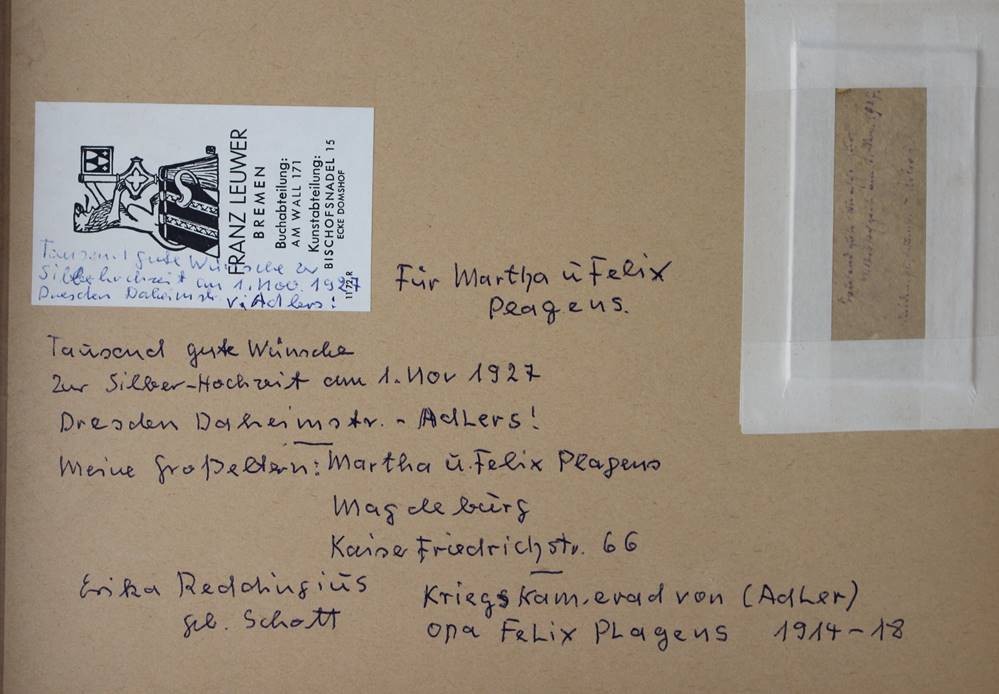 FRANZ LEUWER
BREMEN
Buchabteilung:
AM WALL 171
Kunstabteilung:
BISCHOFSNADEL 15
ECKE DOMSHOF
Tausend gute Wünsche zur
Silberhochzeit am 1. Nov. 1927
Dresden Daheimstr.
v. Adlers!
Für Martha ü Felix
Plagens.
Tausend gute Wünsche
zur Silber-Hochzeit am 1. Nov 1927
Dresden Daheimstr. - Adlers!
Meine Großeltern: Martha ü. Felix Plagens
Magdebürg
Kaiser Friedrichstr. 66
Erika Reddingiüs
geb. Schott
Kriegskamerad von (Adler)
Opa Felix Plagens 1914-18